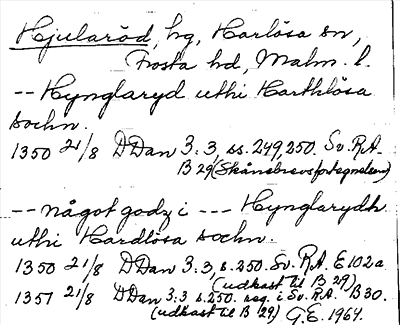 Hjularöd, hg, Harlösa sn,
Frosta hd, Malm. l.
-- Hynglaryd uthi Harthlösa
sochn.
1350 21/8 DDan 3:3, ss. 249,250. Sv. R.A.
B 29 (Skånebrevsfortegnelsen)
-- något godz i --- Hynglarydh
uthi Hardlösa sochn.
1350 21/8 DDan 3:3, s. 250. Sv. R.A. E 102a
(udkast til B 29)
1351 21/8 DDan 3:3 s. 250. reg. i Sv. R.A. B 30.
(udkast til B 29) G.E. 1964.